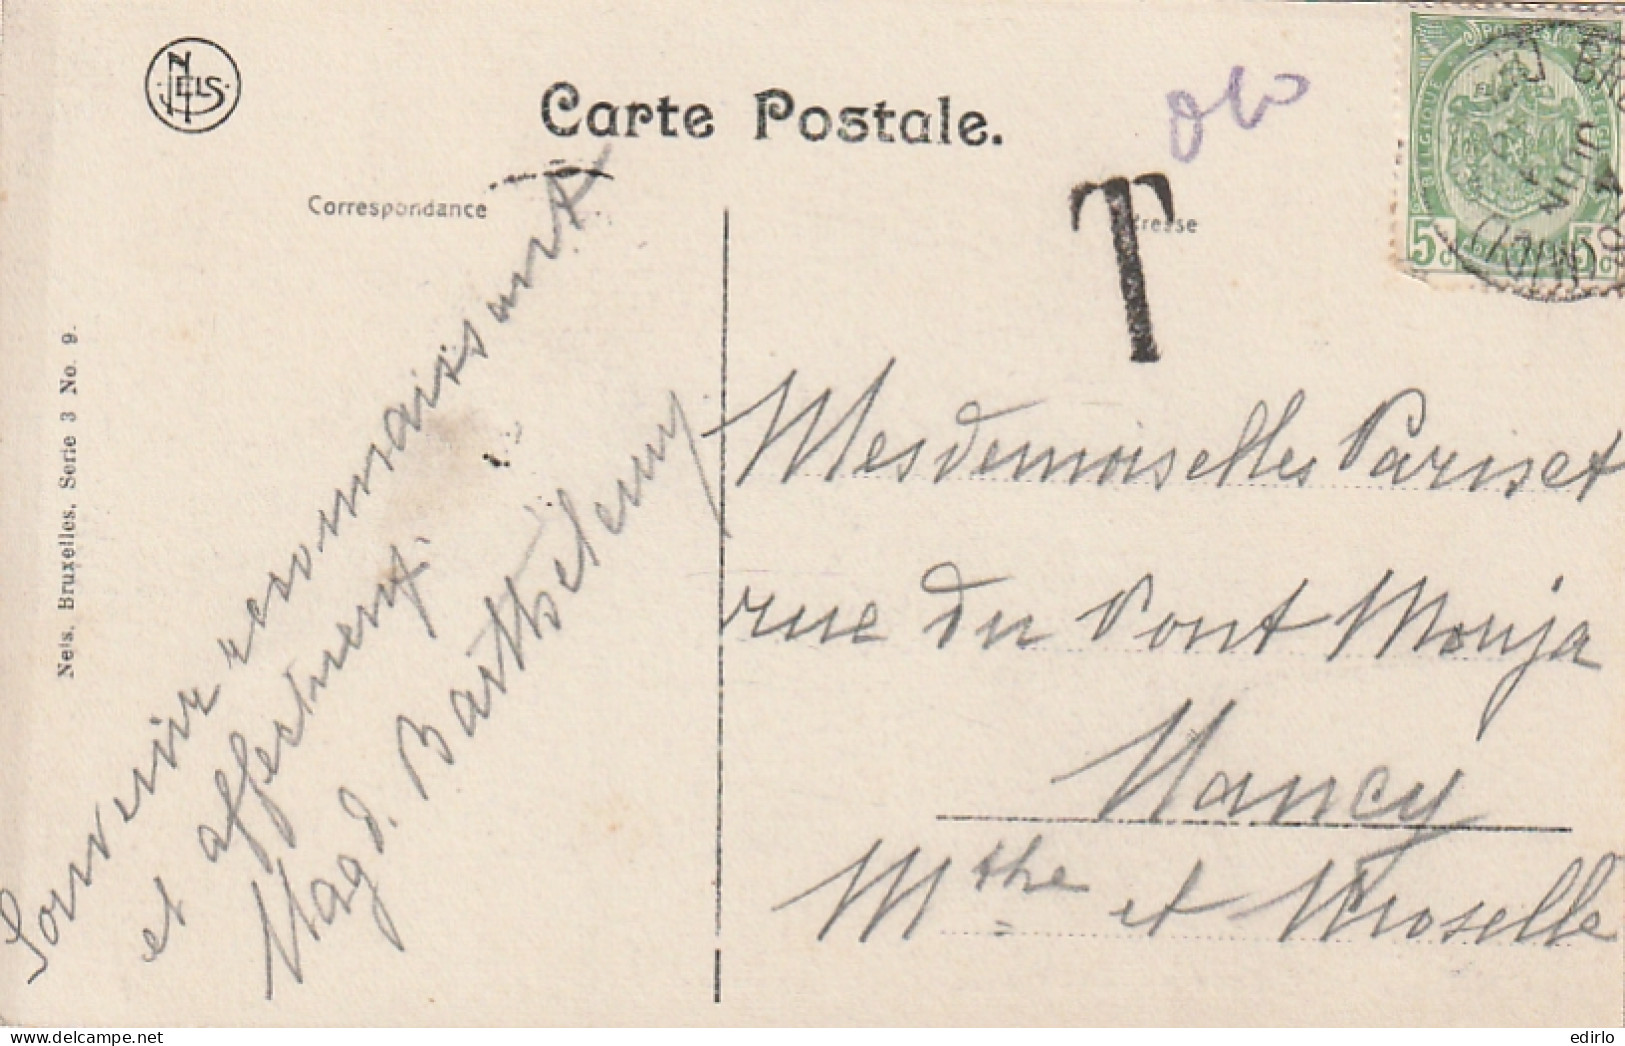 NELS
Carte Postale.
Correspondance
T
resse
BELGIQUE
5c 5c
Nels, Bruxelles, Serie 3 No. 9.
Souvenir reconnaissant
et affectueux.
Magd. Barthelemy
Mesdemoiselles Pariset
rue du Pont Mouja
Nancy
Mthe et Moselle
delcampe.net
edirlo